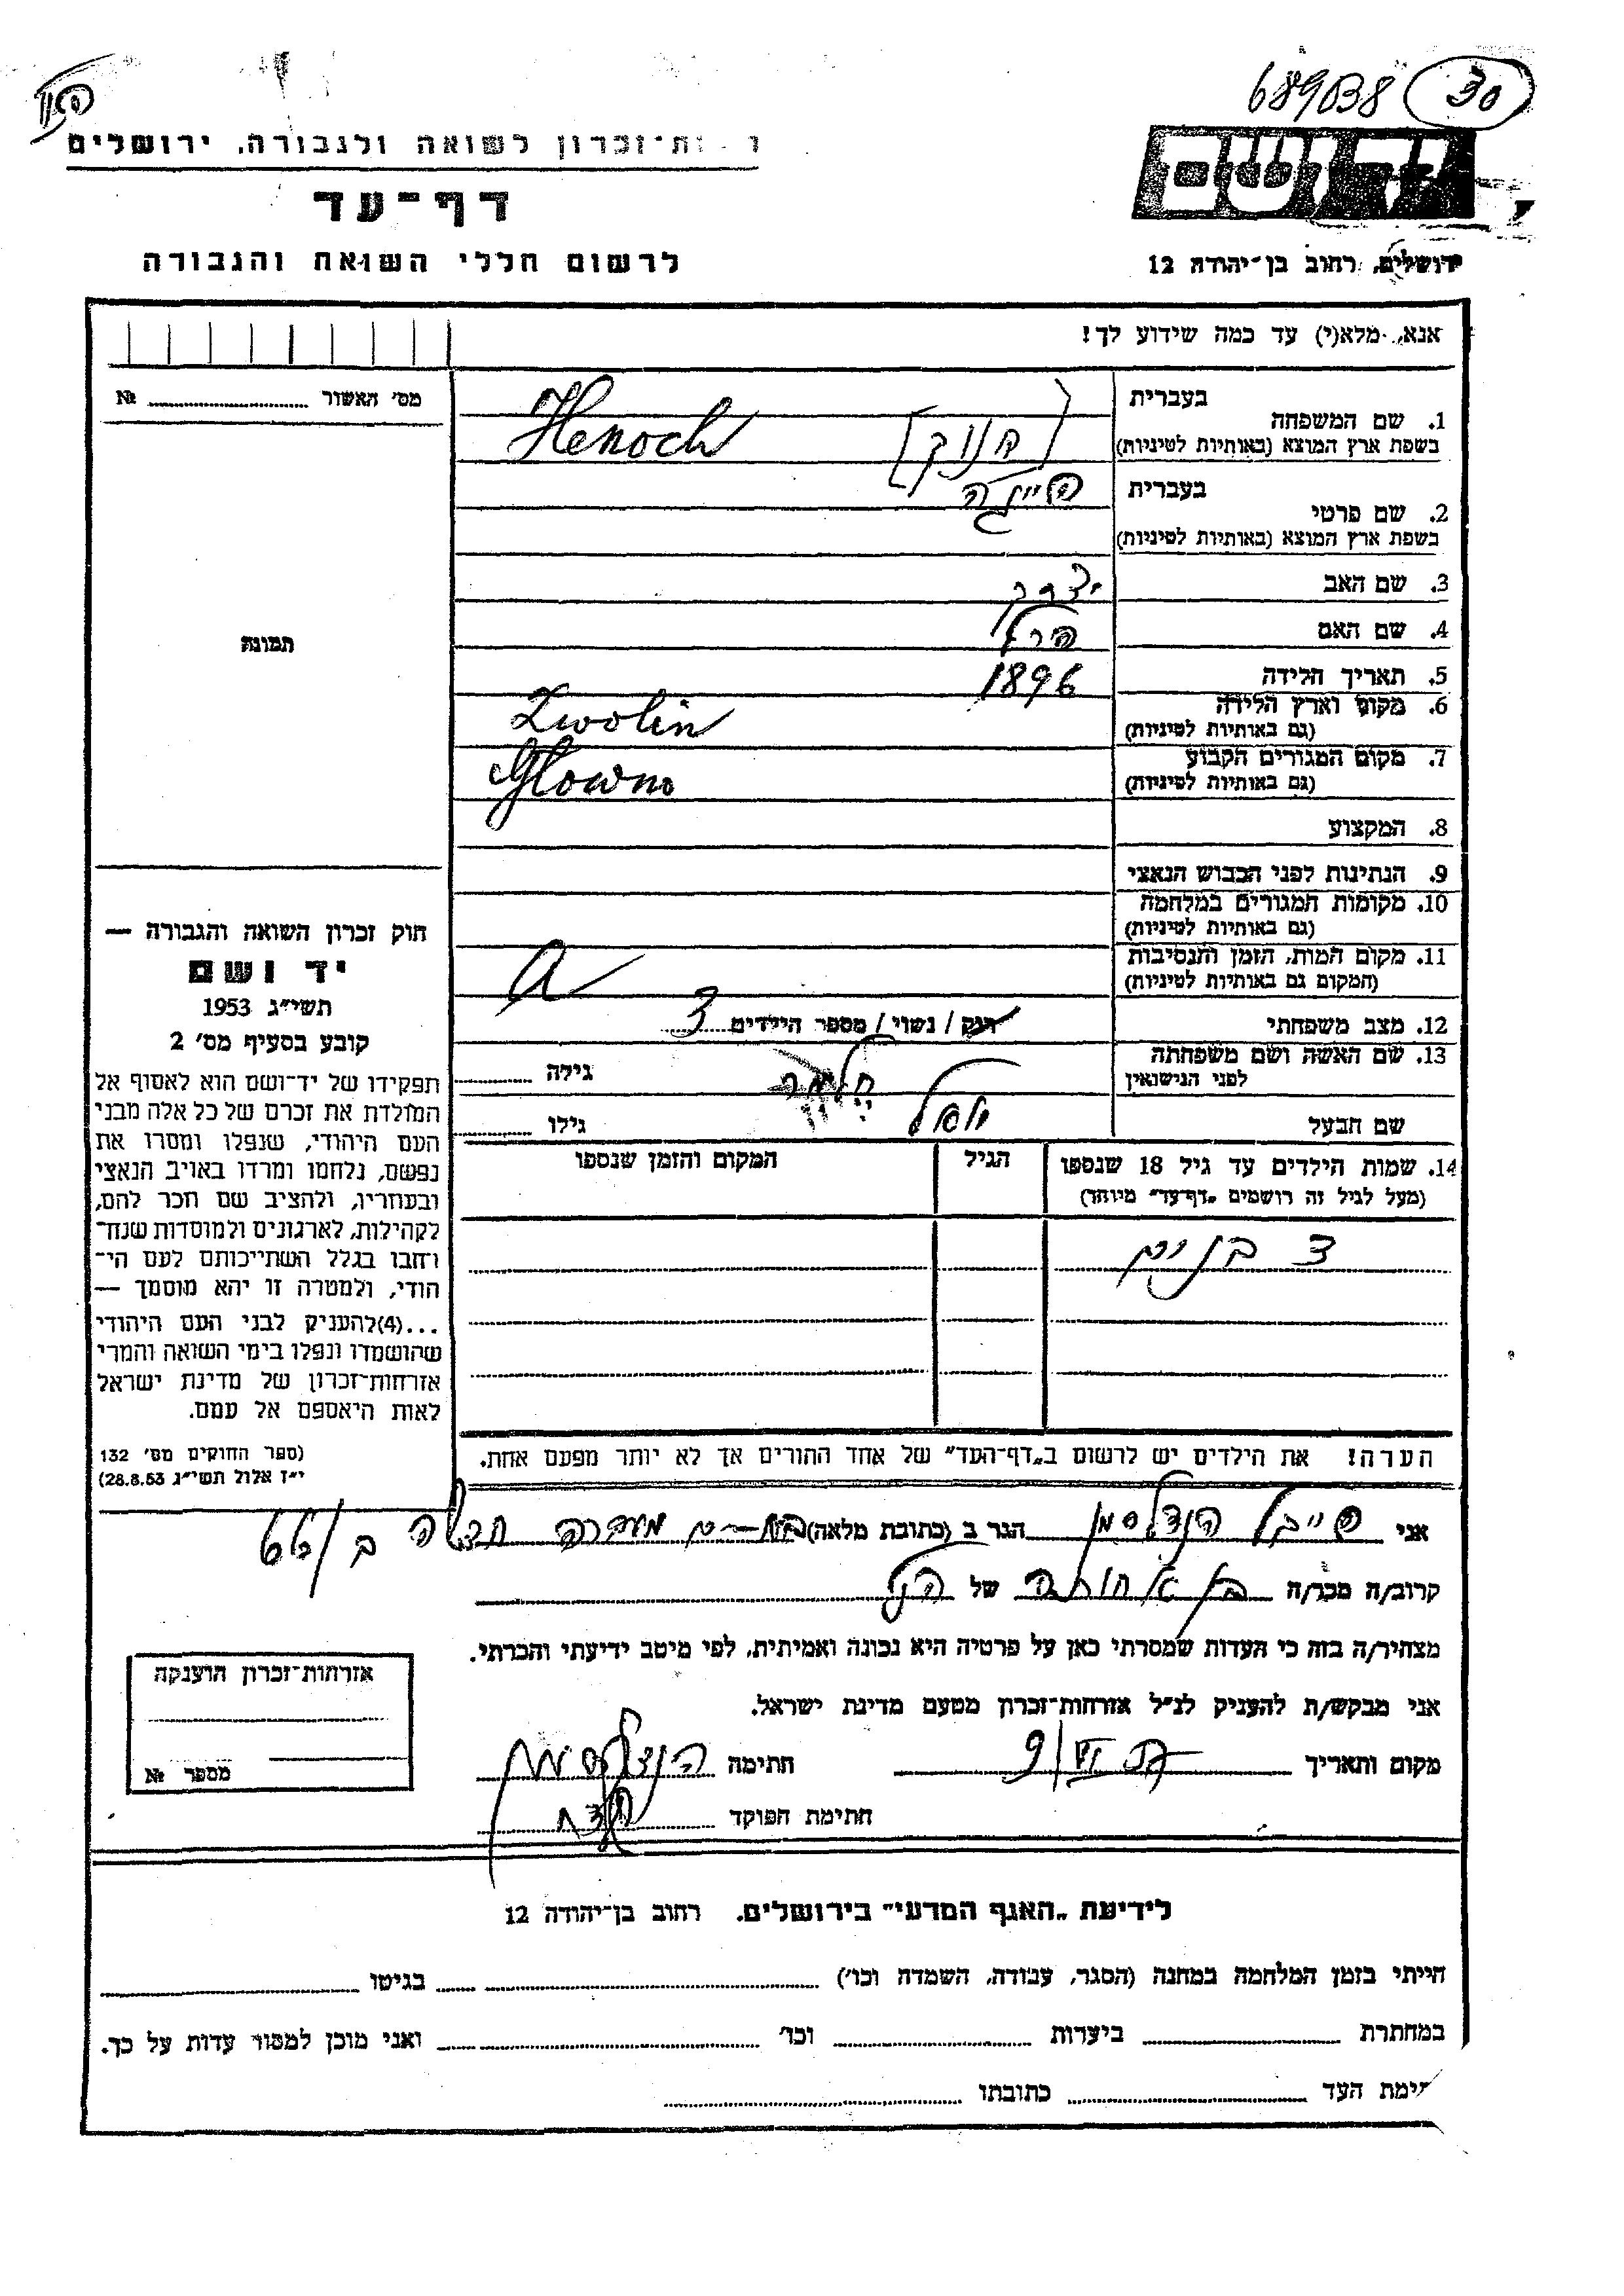 689038 30
ו ת־זכרון לשואה ולגבורה. ירושלים
דף־עד
לרשום חללי השואה והגבורה
יד ושם
ירושלים, רחוב בן־יהודה 12
אנא, מלא(י) עד כמה שידוע לך!
מס' האשור № 
תמונה
1. שם המשפחה בעברית [הנוך]
בשפת ארץ המוצא (באותיות לטיניות) Henoch
2. שם פרטי בעברית
בשפת ארץ המוצא (באותיות לטיניות)
3. שם האב יצחק
4. שם האם
5. תאריך הלידה 1896
6. מקום וארץ הלידה Zwolin
(גם באותיות לטיניות)
7. מקום המגורים הקבוע Glowno
(גם באותיות לטיניות)
8. המקצוע
9. הנתינות לפני הכבוש הנאצי
10. מקומות המגורים במלחמה
(גם באותיות לטיניות)
11. מקום המות, הזמן והנסיבות
(המקום גם באותיות לטיניות)
12. מצב משפחתי רוק / נשוי / מספר הילדים 3
13. שם האשה ושם משפחתה
לפני הנישואין גילה
שם הבעל גילו
14. שמות הילדים עד גיל 18 שנספו הגיל המקום והזמן שנספו
(מעל לגיל זה רושמים „דף־עד" מיוחד)
3 בנים
הערה! את הילדים יש לרשום ב„דף־העד" של אחד ההורים אך לא יותר מפעם אחת.
חוק זכרון השואה והגבורה —
יד ושם
תשי״ג 1953
קובע בסעיף מס' 2
תפקידו של יד־ושם הוא לאסוף אל
המולדת את זכרם של כל אלה מבני
העם היהודי, שנפלו ומסרו את
נפשם, נלחמו ומרדו באויב הנאצי
ובעוזריו, ולהציב שם וזכר להם,
לקהילות, לארגונים ולמוסדות שנח־
רחבו בגלל השתייכותם לעם הי־
הודי, ולמטרה זו יהא מוסמך —
...(4)להעניק לבני העם היהודי
שהושמדו ונפלו בימי השואה והמרי
אזרחות־זכרון של מדינת ישראל
לאות היאספם אל עמם.
(ספר החוקים מס' 132
י״ז אלול תשי״ג 28.8.53)
אני פייבל הנדלסמן הגר ב (כתובת מלאה)
קרוב/ה מכר/ה בן אחותה של הנ״ל
מצהיר/ה בזה כי העדות שמסרתי כאן על פרטיה היא נכונה ואמיתית, לפי מיטב ידיעתי והכרתי.
אני מבקש/ת להעניק לנ״ל אזרחות־זכרון מטעם מדינת ישראל.
מקום ותאריך 9/VI חתימה הנדלסמן
חתימת הפוקד
אזרחות־זכרון הוענקה
מספר №
לידיעת „האגף המדעי" בירושלים, רחוב בן־יהודה 12
הייתי בזמן המלחמה במחנה (הסגר, עבודה, השמדה וכו') בגיטו
במחתרת ביערות וכו' ואני מוכן למסור עדות על כך.
ימת העד כתובתו